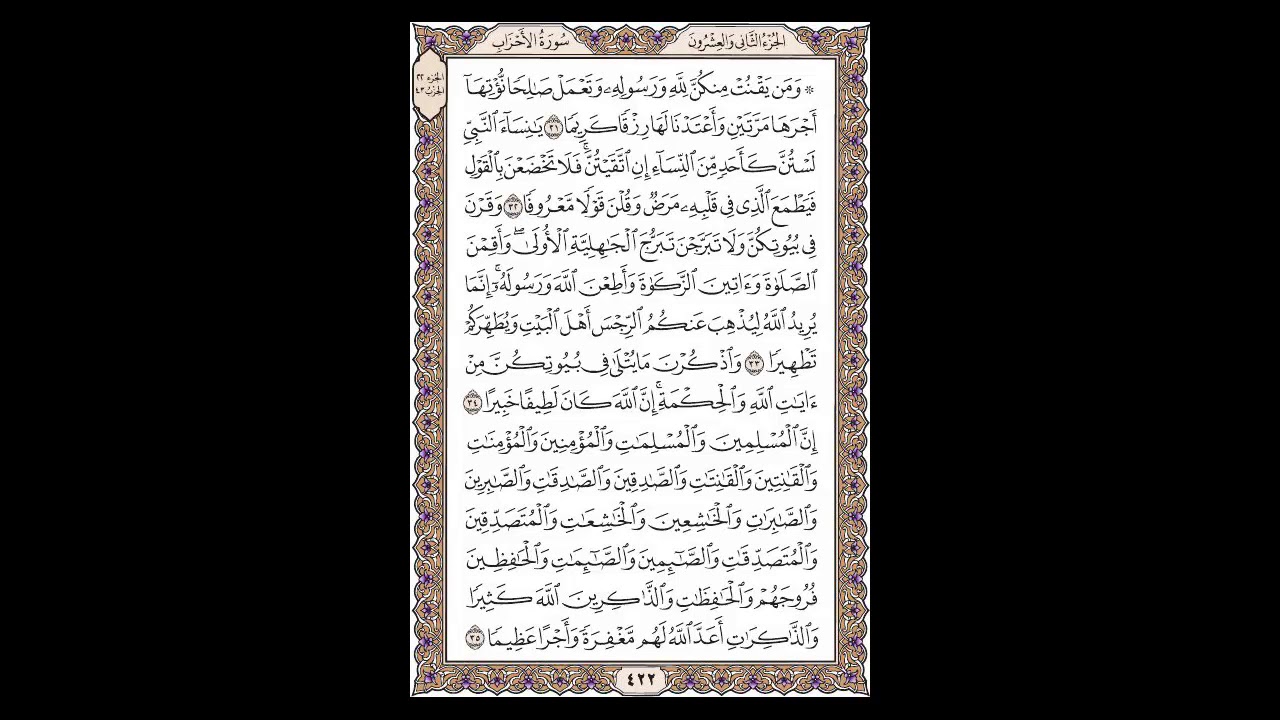 الجزء الثاني والعشرون
سورة الأحزاب
الجزء ٢٢
الحزب ٤٣
۞ وَمَن يَقْنُتْ مِنكُنَّ لِلَّهِ وَرَسُولِهِۦ وَتَعْمَلْ صَٰلِحًا نُّؤْتِهَآ
أَجْرَهَا مَرَّتَيْنِ وَأَعْتَدْنَا لَهَا رِزْقًا كَرِيمًا ٣١ يَٰنِسَآءَ ٱلنَّبِيِّ
لَسْتُنَّ كَأَحَدٍ مِّنَ ٱلنِّسَآءِ إِنِ ٱتَّقَيْتُنَّۚ فَلَا تَخْضَعْنَ بِٱلْقَوْلِ
فَيَطْمَعَ ٱلَّذِى فِى قَلْبِهِۦ مَرَضٌ وَقُلْنَ قَوْلًا مَّعْرُوفًا ٣٢ وَقَرْنَ
فِى بُيُوتِكُنَّ وَلَا تَبَرَّجْنَ تَبَرُّجَ ٱلْجَٰهِلِيَّةِ ٱلْأُولَىٰۖ وَأَقِمْنَ
ٱلصَّلَوٰةَ وَءَاتِينَ ٱلزَّكَوٰةَ وَأَطِعْنَ ٱللَّهَ وَرَسُولَهُۥٓۚ إِنَّمَا
يُرِيدُ ٱللَّهُ لِيُذْهِبَ عَنكُمُ ٱلرِّجْسَ أَهْلَ ٱلْبَيْتِ وَيُطَهِّرَكُمْ
تَطْهِيرًا ٣٣ وَٱذْكُرْنَ مَا يُتْلَىٰ فِى بُيُوتِكُنَّ مِنْ
ءَايَٰتِ ٱللَّهِ وَٱلْحِكْمَةِۚ إِنَّ ٱللَّهَ كَانَ لَطِيفًا خَبِيرًا ٣٤
إِنَّ ٱلْمُسْلِمِينَ وَٱلْمُسْلِمَٰتِ وَٱلْمُؤْمِنِينَ وَٱلْمُؤْمِنَٰتِ
وَٱلْقَٰنِتِينَ وَٱلْقَٰنِتَٰتِ وَٱلصَّٰدِقِينَ وَٱلصَّٰدِقَٰتِ وَٱلصَّٰبِرِينَ
وَٱلصَّٰبِرَٰتِ وَٱلْخَٰشِعِينَ وَٱلْخَٰشِعَٰتِ وَٱلْمُتَصَدِّقِينَ
وَٱلْمُتَصَدِّقَٰتِ وَٱلصَّٰٓئِمِينَ وَٱلصَّٰٓئِمَٰتِ وَٱلْحَٰفِظِينَ
فُرُوجَهُمْ وَٱلْحَٰفِظَٰتِ وَٱلذَّٰكِرِينَ ٱللَّهَ كَثِيرًا
وَٱلذَّٰكِرَٰتِ أَعَدَّ ٱللَّهُ لَهُم مَّغْفِرَةً وَأَجْرًا عَظِيمًا ٣٥
٤٢٢